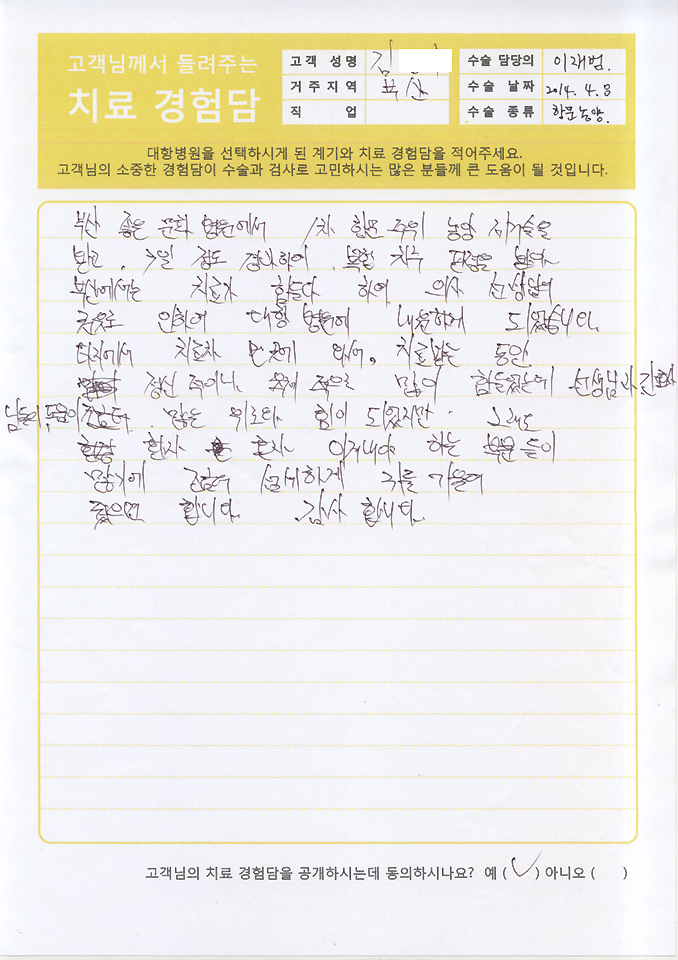 고객님께서 들려주는
치료 경험담
고객 성명 김
거주지역 부산
직 업
수술 담당의 이재범.
수술 날짜 2014. 4. 8
수술 종류 항문농양.
대항병원을 선택하시게 된 계기와 치료 경험담을 적어주세요.
고객님의 소중한 경험담이 수술과 검사로 고민하시는 많은 분들께 큰 도움이 될 것입니다.
부산 좋은 문화 병원에서 1차 항문 주위 농양
받고. 7일 정도 경과하여. 복합 치루 판정을 받다.
부산에서는 치료가 힘들다 하여 의사 선생님의
권유로 인하여 대항 병원에 내원하게 되었습니다.
타지에서 치료차 먼곳에 와서, 치료받는 동안
정신 적이나. 적으로 많이 힘들었는데 선생님과 간호사
님들의 도움이 많은 위로와 힘이 되었지만. 그래도
환자 혼자. 이겨내야 하는 부분 들이
많기에 조금더 섬세하게 귀를 기울여
줬으면 합니다. 감사 합니다.
고객님의 치료 경험담을 공개하시는데 동의하시나요? 예 (✓) 아니오 ( )